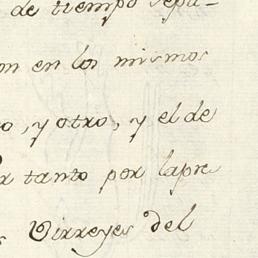 de tiempo sepu-
on en los mismos
o, y otro, y el de
r tanto por lapre
s Virreyes del